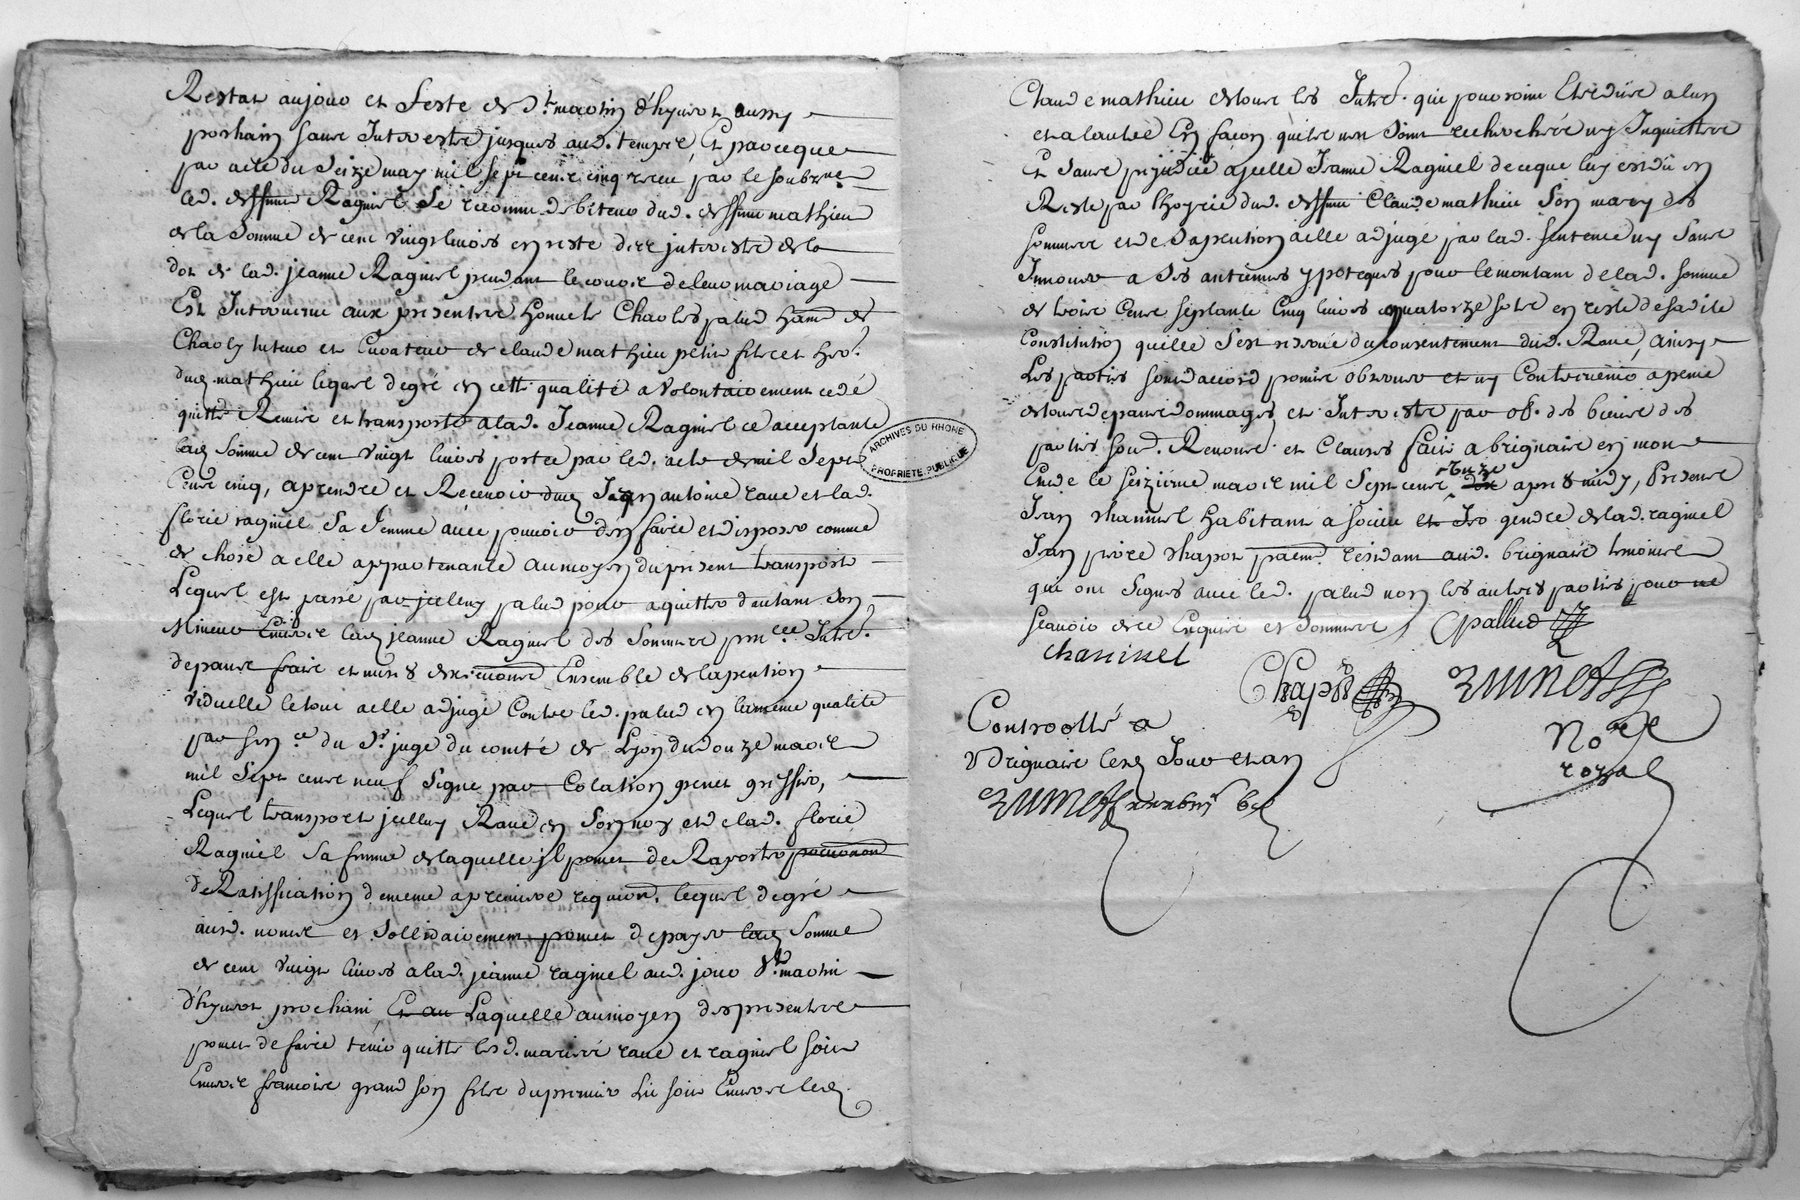 Restat aujour et feste de St martin d'hyvert aussy
prochain sans Interestz jusques aud. temps, Et parceque
par acte du Seize may mil sept cent cinq receu par le soubzne
led. deffunt Ragniel Se reconnu debiteur dud. deffunt mathieu
de la Somme de cent vingt livres en reste des interestz de la
dot de lad. jeanne Ragniel pendant le cours de leur mariage
Est Intervenu aux presentes Honnete Charles palud habt de
Charly tuteur et Curateur de claude mathieu petit fils et her.
dud. mathieu lequel de gré en cette qualité a volontairement cedé
quitté Remis et transporté a lad. Jeanne Ragniel ce acceptante
lad. Somme de cent vingt livres portée par led. acte de mil Sept
Cent cinq, a prendre et Recevoir dud. Jean antoine rave et lad.
florie ragniel Sa femme avec pouvoir d'en faire et disposer comme
de chose a elle appartenante au moyen du present transport
Lequel est passé par icelluy palud pour aquitter d'autant Son
Mineur Envers lad. jeanne Ragniel des Sommes pnlle Intrs.
depans faits et mises d'execution Ensemble de la pention
viduelle le tout a elle adjugé Contre led. palud en la meme qualité
par Sence du Sr juge du comté de Lyon du douze mars
mil Sept cent neuf Signé par Colation grenet greffier,
Lequel transport icelluy Rave en Son nom et de lad. florie
Ragniel Sa femme de laquelle il promet de Raporter procuration
de Ratiffication d'ememe a premiere requion. lequel de gré
ausd. noms et Sollidairement promet de payer lad. Somme
de cent vingt livres a lad. jeanne ragniel aud. jour St martin
d'hyvert prochain Et au Laquelle au moyen des presentes
promet de faire tenir quitte lesd. mariés rave et ragniel soit
Envers francois grand Son fils du premier lit soit Envers led.
Claude mathieu de tous les Intrs. qui pouroint Etre dus a l'un
et a l'autre En façon qu'ils n'en Soint recherchés ny Inquiettés
Et Sans prejudice a icelle Jeanne Ragniel de ce que luy est dû en
Reste par l'hoyrie dud. deffunt Claude mathieu Son mary des
Sommes et de Sa pention a elle adjugé par lad. Sentence ny Sans
Innover a Ses antiennes ypoteques pour le montant de lad. Somme
de trois Cents septante Cinq livres quatorze sols en reste de sadite
Constitution qu'elle S'est reservé du consentement dud. Rave, ainsy
Les parties sont d'accord promis observer et ny Contrevenir a peine
de tous depans dommages et Interestz par ob. des biens des
parties soub. Renonc. et Clauses fait a brignais en mon
Etude le seizieme mars mil Sept cents onze apres midy, Presents
Jean chaninel habitant a Socieu et gendre de lad. ragniel
Jean piere chapot pratn. residant aud. brignais temoins
qui ont Signés avec led. palud non les autres parties pour ne
Scavoir de ce Enquis et Sommes
Cpallud
chaninel
Chapot
Controollé a
Brignais led. Jour et an
Nore
royal